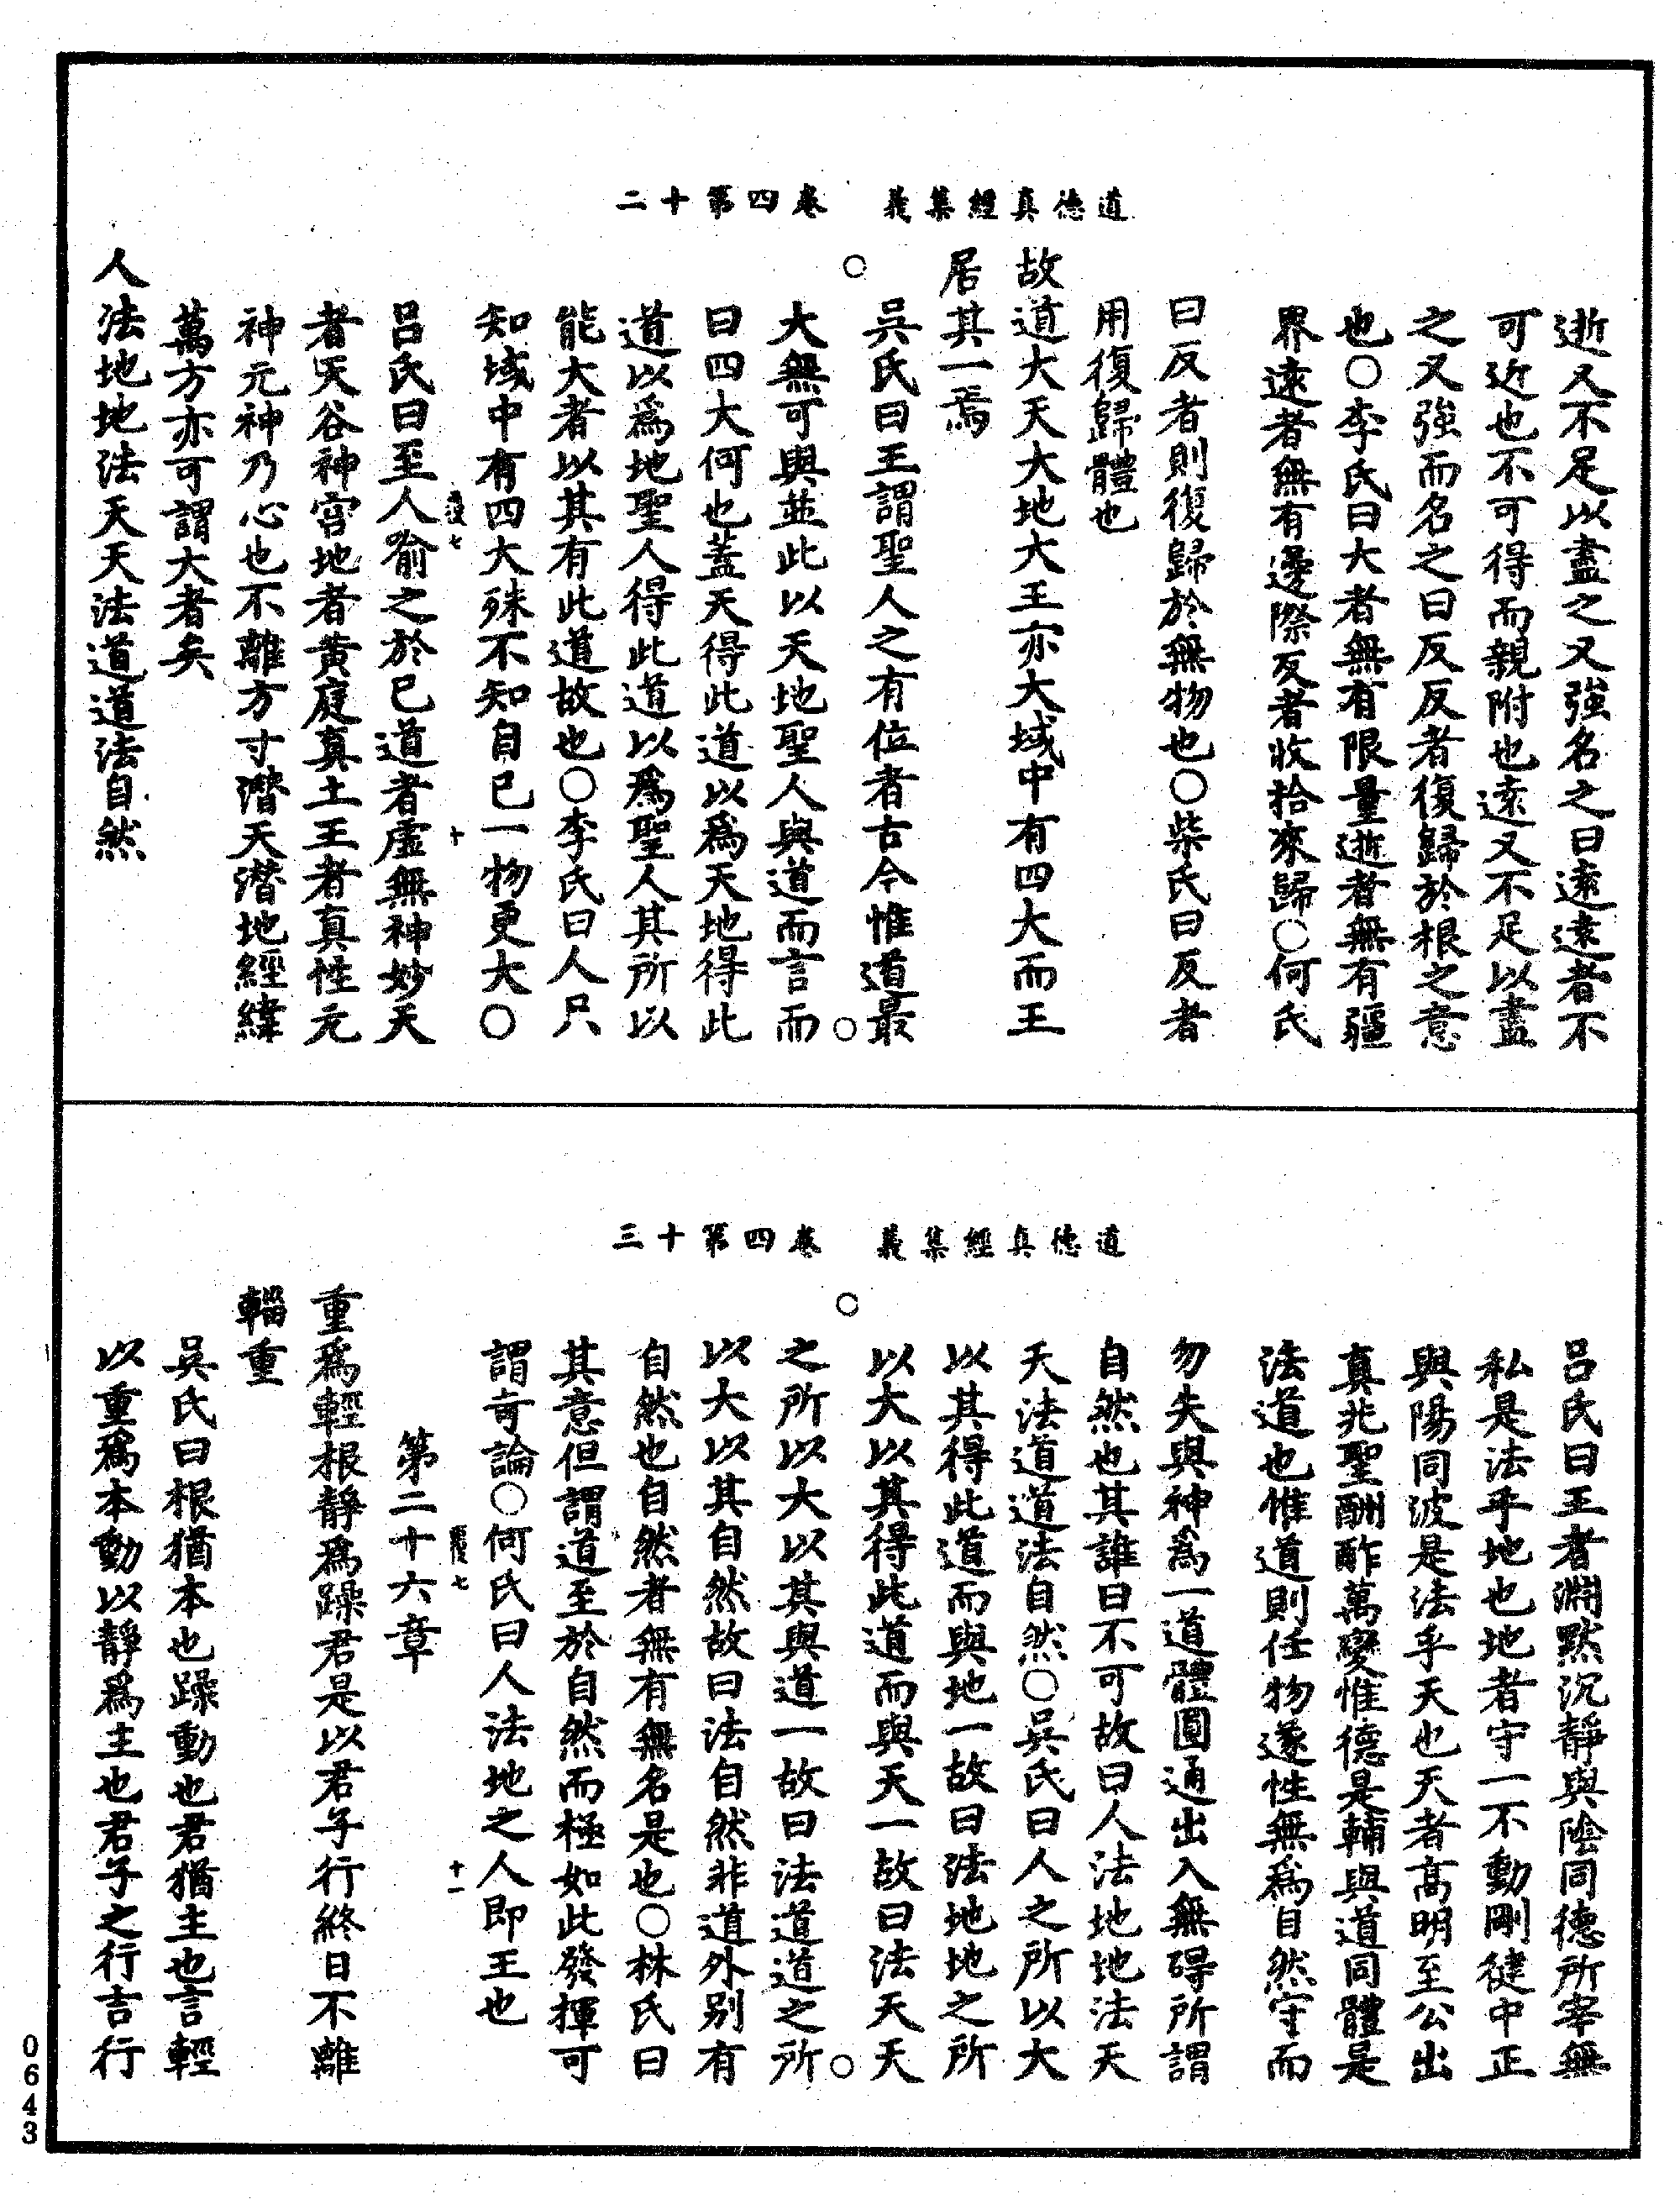 道德真經集義　卷四第十二
逝又不足以盡之又強名之曰遠遠者不
可近也不可得而親附也遠又不足以盡
之又強而名之曰反反者復歸於根之意
也○李氏曰大者無有限量逝者無有疆
界遠者無有邊際反者收拾來歸○何氏
曰反者則復歸於無物也○柴氏曰反者
用復歸體也
故道大天大地大王亦大域中有四大而王
居其一焉
吳氏曰王謂聖人之有位者古今惟道最
大無可與並此以天地聖人與道而言而
曰四大何也蓋天得此道以為天地得此
道以爲地聖人得此道以爲聖人其所以
能大者以其有此道故也○李氏曰人只
知域中有四大殊不知自己一物更大○
七
十
呂氏曰至人喻之於已道者虛無神妙天
者天谷神宮地者黃庭真土王者真性元
神元神乃心也不離方寸潛天潛地經緯
萬方亦可謂大者矣
人法地地法天天法道道法自然
道德真經集義　卷四第十三
呂氏曰王者淵默沉靜與陰同德所宰無
私是法乎地也地者守一不動剛健中正
與陽同波是法乎天也天者高明至公出
真兆聖酬酢萬變惟德是輔與道同體是
法道也惟道則任物遂性無爲自然守而
勿失與神為一道體圓通出入無碍所謂
自然也其誰曰不可故曰人法地地法天
天法道道法自然○吳氏曰人之所以大
以其得此道而與地一故曰法地地之所
以大以其得此道而與天一故曰法天天
之所以大以其與道一故曰法道道之所
以大以其自然故曰法自然非道外别有
自然也自然者無有無名是也○林氏曰
其意但謂道至於自然而極如此發揮可
謂奇論○何氏曰人法地之人即王也
七
十一
第二十六章
重爲輕根靜爲躁君是以君子行終日不離
輜重
吳氏曰根猶本也躁動也君猶主也言輕
以重爲本動以靜爲主也君子之行吉行
0643